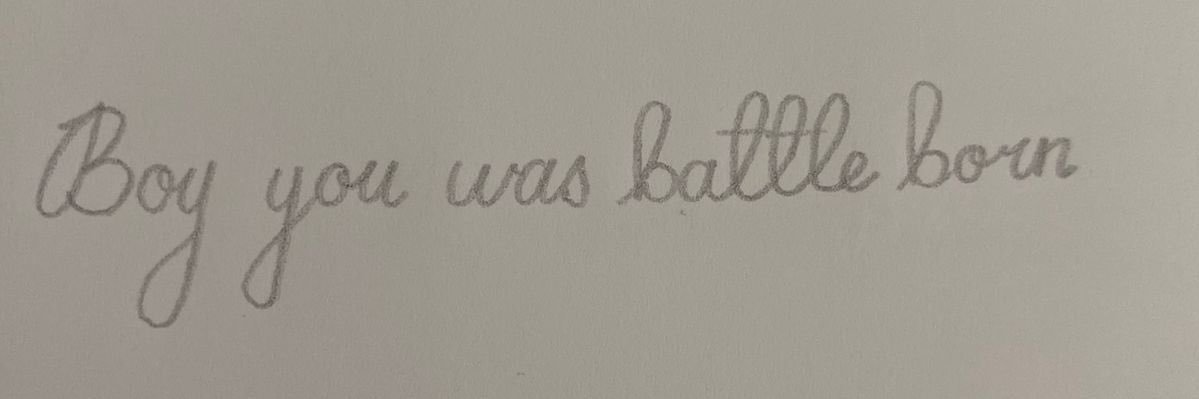 Boy you was battle born